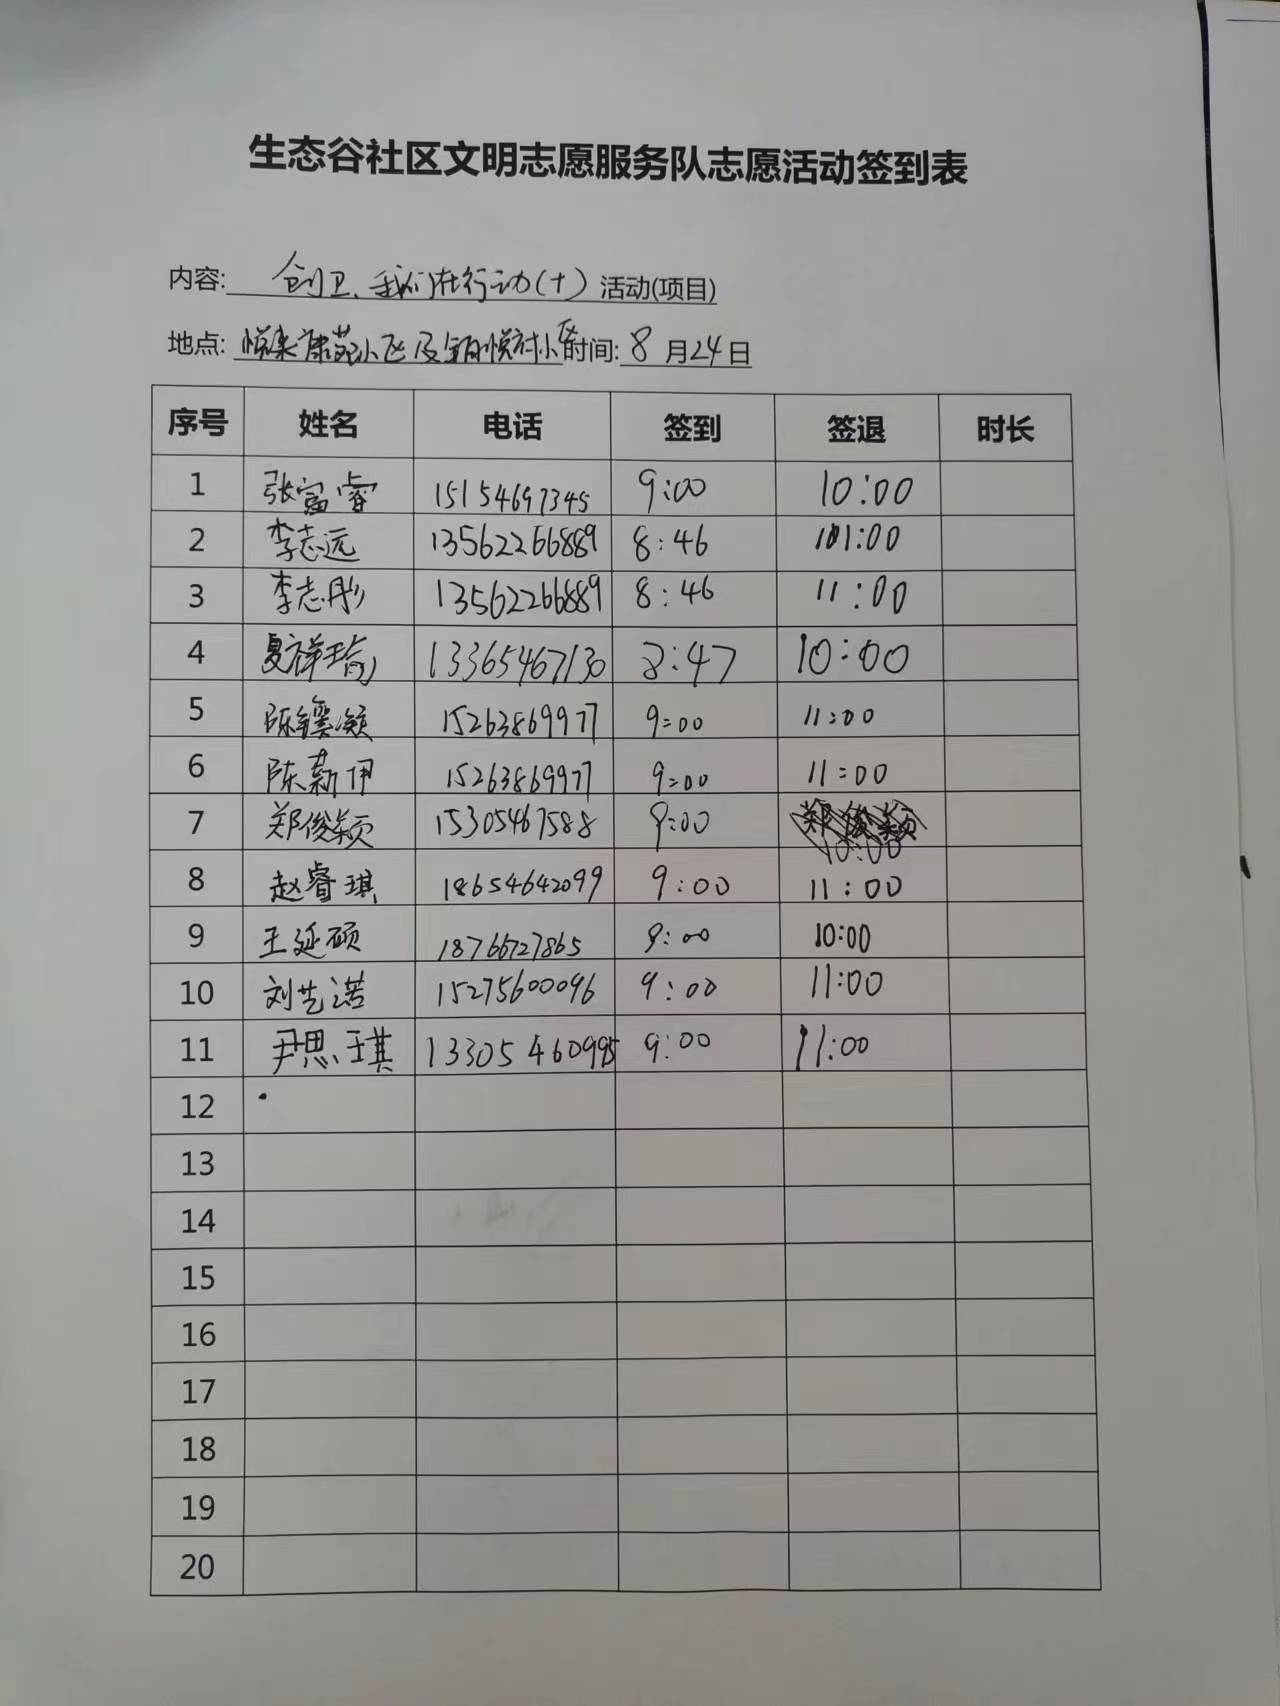 生态谷社区文明志愿服务队志愿活动签到表
内容: 创卫、我们在行动(十) 活动(项目)
地点: 悦来康苑小区及 悦府小区 时间: 8 月24日
序号 姓名 电话 签到 签退 时长
1 张富睿 15154697345 9:00 10:00
2 李志远 13562266889 8:46 11:00
3 李志彤 13562266889 8:46 11:00
4 夏祥瑜 13365467130 8:47 10:00
5 陈 颖 15263869977 9:00 11:00
6 陈薪伊 15263869977 9:00 11:00
7 郑俊颖 15305467588 9:00 郑俊颖 10:00
8 赵睿琪 18654642099 9:00 11:00
9 王延硕 18766727865 9:00 10:00
10 刘艺诺 15275600096 9:00 11:00
11 尹思琪 13305460995 9:00 11:00
12
13
14
15
16
17
18
19
20